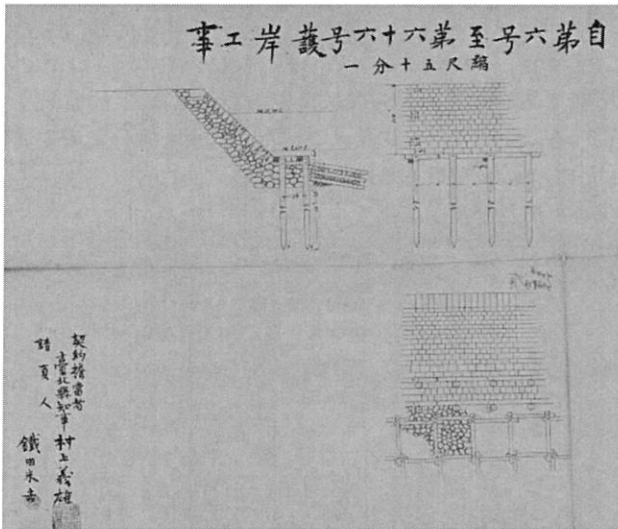 自第六号至第六十六号護岸工事
縮尺五十分一
契約擔當者
臺北縣知事 村上義雄
請負人 鐵田米吉